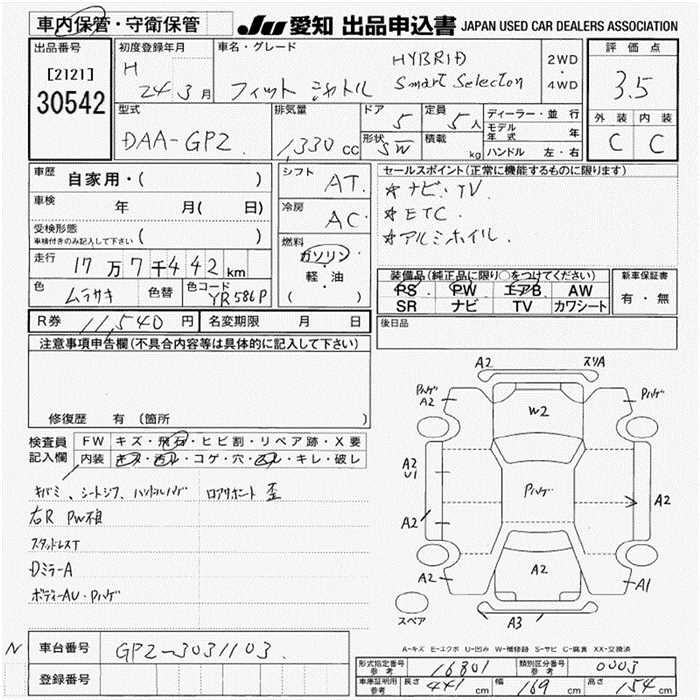 車内保管・守衛保管
JU 愛知 出品申込書 JAPAN USED CAR DEALERS ASSOCIATION
出品番号
[2121]
30542
初度登録年月
H 24年 3月
車名・グレード
フィット シャトル
HYBRID
Smart Selection
2WD
・
4WD
評価点
3.5
外装 内装
C C
型式
DAA-GP2
排気量
1,330 cc
ドア
5
形状
SW
定員
5人
積載
kg
ディーラー・並行
モデル年式 年
ハンドル 左・右
車歴 自家用・( )
車検 年 月( 日)
受検形態
車検付きのみ記入して下さい ( )
走行 17万7千442km
色 ムラサキ 色替 色コード YR586P
シフト AT
冷房 AC
燃料
ガソリン
軽・油
( )
セールスポイント(正常に機能するものに限ります)
☆ ナビ・TV
☆ ETC
☆ アルミホイル
装備品(純正品に限り○をつけてください)
PS PW エアB AW
SR ナビ TV カワシート
新車保証書
有・無
R券 11,540円 名変期限 月 日
後日品
注意事項申告欄(不具合内容等は具体的に記入して下さい)
修復歴 有(箇所 )
検査員記入欄
FW キズ・飛石・ヒビ割・リペア跡・X要
内装 キズ・汚レ・コゲ・穴・スレ・キレ・破レ
キバミ、シートシワ、ハンドルハゲ ロアサポート 歪
右R PW不良
スタッドレスT
DミラーA
ボディーAU・Pハゲ
A2 スリA
Pハゲ
A2
Pハゲ
W2
A2
U1
Pハゲ
A2
A2
A2
A2
A1
A3
スペア
A-キズ E-エクボ U-凹み W-補修跡 S-サビ C-腐食 XX-交換済
N
車台番号 GP2-3031103
登録番号
形式指定番号
参考
16801
類別区分番号
参考
0003
車庫証明用
参考
長さ 441cm 幅 169cm 高さ 154cm